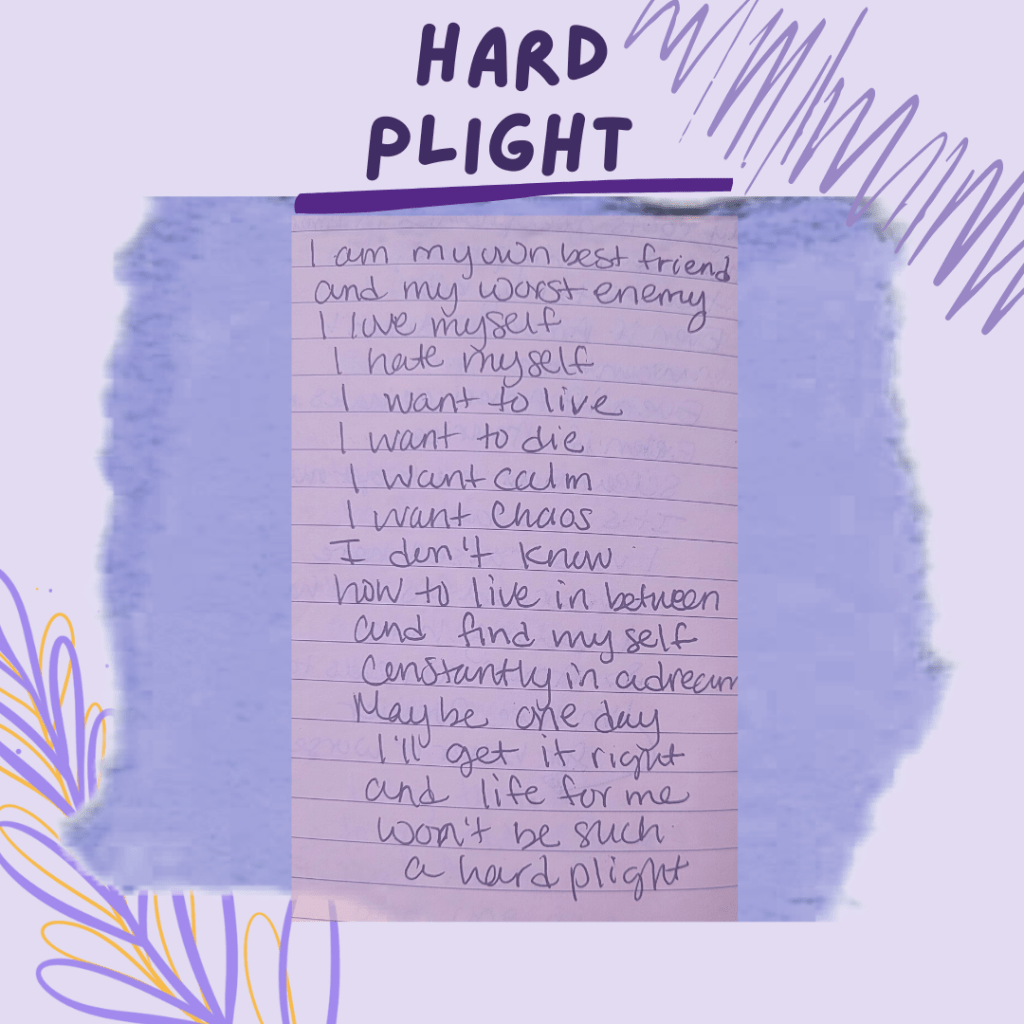 HARD
PLIGHT
I am my own best friend
and my worst enemy
I love myself
I hate myself
I want to live
I want to die
I want calm
I want chaos
I don't know
how to live in between
and find myself
constantly in a dream
Maybe one day
I'll get it right
and life for me
won't be such
a hard plight